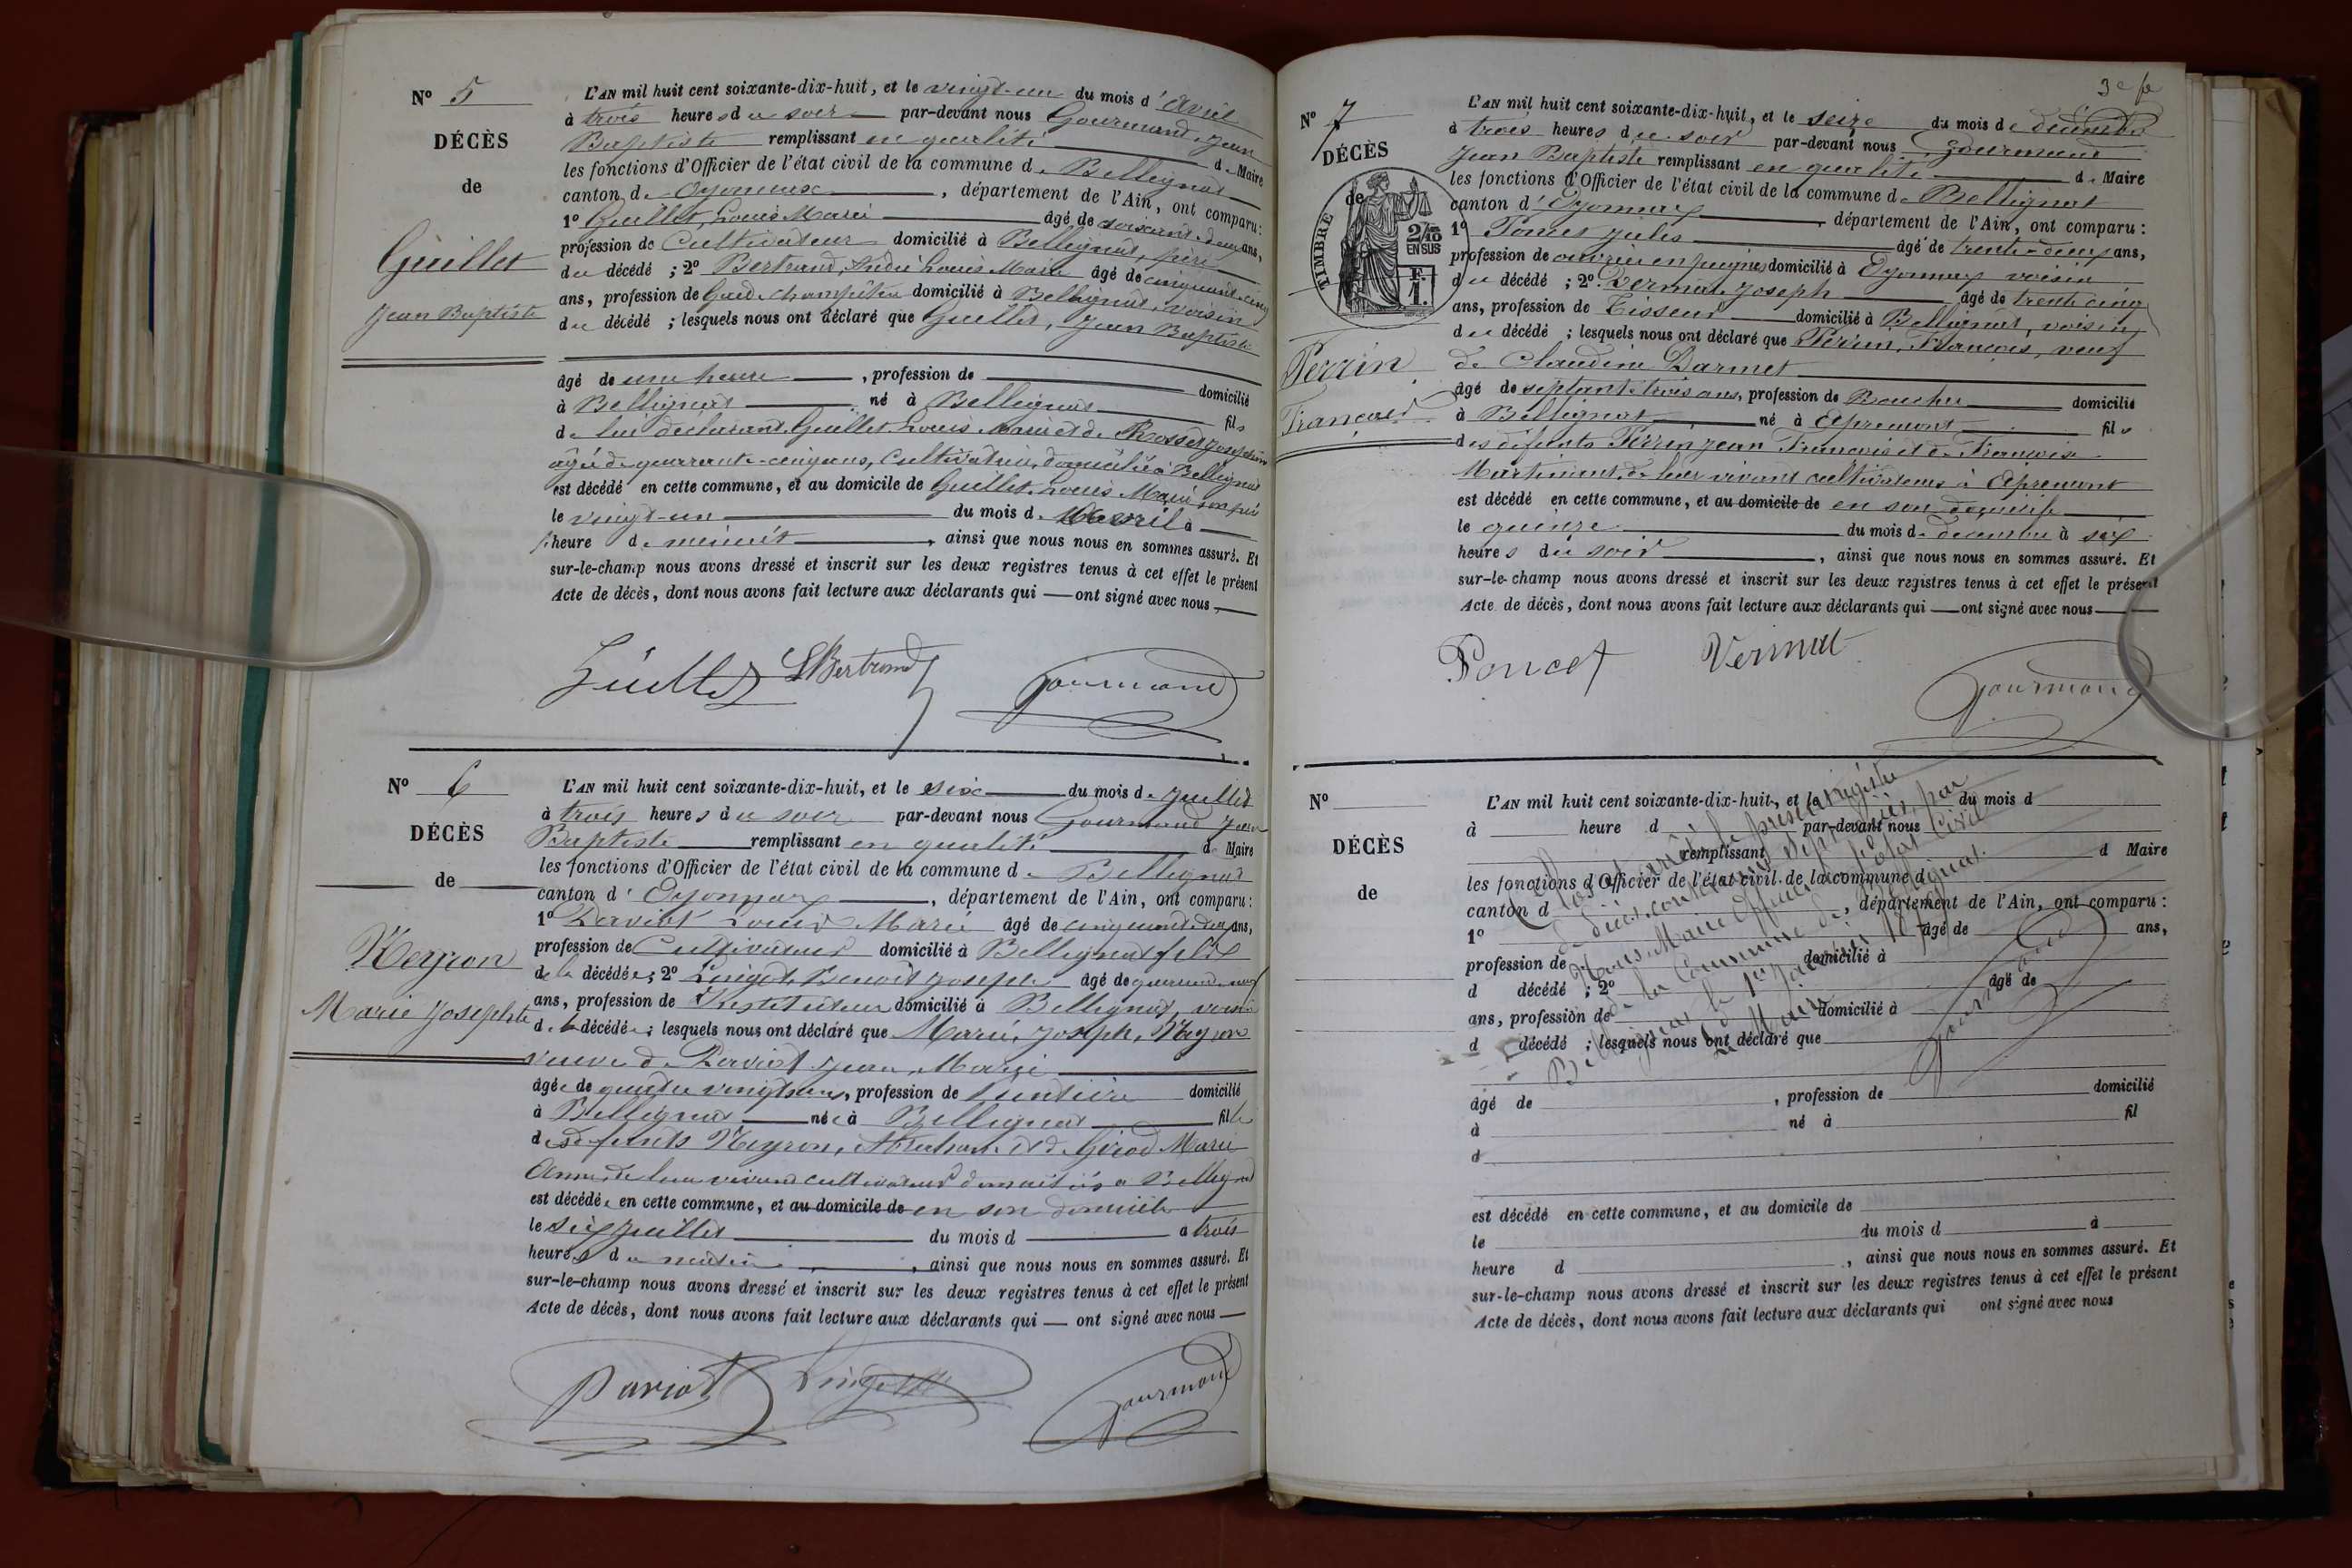 N° 5
DÉCÈS
de
Guillet
Jean Baptiste
L'AN mil huit cent soixante-dix-huit, et le vingt-un du mois d'Avril
à trois heures du soir par-devant nous Gourmand, Jean
Baptiste remplissant en qualité de Maire
les fonctions d'Officier de l'état civil de la commune de Bellignat
canton d'Oyonnax, département de l'Ain, ont comparu:
1° Guillet, Louis Marie âgé de soixante-deux ans,
profession de Cultivateur domicilié à Bellignat, père
du décédé; 2° Bertrand, André Louis Marie âgé de cinquante-cinq
ans, profession de Garde champêtre domicilié à Bellignat, voisin
du décédé; lesquels nous ont déclaré que Guillet, Jean Baptiste
âgé de une heure, profession de domicilié
à Bellignat né à Bellignat fils
de lui déclarant Guillet Louis Marie et de Rosset Josephine
âgée de quarante-cinq ans, Cultivatrice, domiciliée à Bellignat
est décédé en cette commune, et au domicile de Guillet Louis Marie son père
le vingt-un du mois d'Avril à
heure de minuit, ainsi que nous nous en sommes assuré. Et
sur-le-champ nous avons dressé et inscrit sur les deux registres tenus à cet effet le présent
Acte de décès, dont nous avons fait lecture aux déclarants qui ont signé avec nous
Guillet LBertrand Gourmand
N° 6
DÉCÈS
de
Neyron
Marie Josephte
L'AN mil huit cent soixante-dix-huit, et le six du mois de Juillet
à trois heures du soir par-devant nous Gourmand Jean
Baptiste remplissant en qualité de Maire
les fonctions d'Officier de l'état civil de la commune de Bellignat
canton d'Oyonnax, département de l'Ain, ont comparu:
1° Darviot Louis Marie âgé de cinquante-deux ans,
profession de Cultivateur domicilié à Bellignat fils
de la décédée; 2° Lingot Benoit Joseph âgé de quarante-neuf
ans, profession de Instituteur domicilié à Bellignat, voisin
de la décédée; lesquels nous ont déclaré que Marie, Joseph, Neyron
veuve de Darviot Jean Marie
âgée de quatre vingt ans, profession de Rentière domicilié
à Bellignat née à Bellignat fille
de défunts Neyron, Abraham et de Girod Marie
Anne, de leur vivant cultivateurs domiciliés à Bellignat
est décédée en cette commune, et au domicile de en son domicile
le six Juillet du mois d à trois
heures du matin, ainsi que nous nous en sommes assuré. Et
sur-le-champ nous avons dressé et inscrit sur les deux registres tenus à cet effet le présent
Acte de décès, dont nous avons fait lecture aux déclarants qui ont signé avec nous
Dariot Gourmand
3e fe
N° 7
DÉCÈS
de
TIMBRE
2/10
EN SUS
F.
1.
Perrin
François
L'AN mil huit cent soixante-dix-huit, et le seize du mois de décembre
à trois heures du soir par-devant nous Gourmand
Jean Baptiste remplissant en qualité de Maire
les fonctions d'Officier de l'état civil de la commune de Bellignat
canton d'Oyonnax département de l'Ain, ont comparu:
1° Poncet Jules âgé de trente-deux ans,
profession de ouvrier en peignes domicilié à Oyonnax voisin
du décédé; 2° Vermat Joseph âgé de trente cinq
ans, profession de Tisseur domicilié à Bellignat, voisin
du décédé; lesquels nous ont déclaré que Perrin, François, veuf
de Claudine Darmet
âgé de septante-trois ans, profession de Boucher domicilié
à Bellignat né à Apremont fils
des défunts Perrin Jean François et de Françoise
Martinent, de leur vivant cultivateurs à Apremont
est décédé en cette commune, et au domicile de en son domicile
le quinze du mois de décembre à six
heures du soir, ainsi que nous nous en sommes assuré. Et
sur-le-champ nous avons dressé et inscrit sur les deux registres tenus à cet effet le présent
Acte de décès, dont nous avons fait lecture aux déclarants qui ont signé avec nous
Poncet Vermat
Gourmand
N°
DÉCÈS
de
L'AN mil huit cent soixante-dix-huit, et le du mois d
à heure d par-devant nous
remplissant d Maire
les fonctions d'Officier de l'état civil de la commune d
canton d, département de l'Ain, ont comparu:
1° âgé de ans,
profession de domicilié à
d décédé; 2° âgé de
ans, profession de domicilié à
d décédé; lesquels nous ont déclaré que
âgé de, profession de domicilié
à né à fil
d
est décédé en cette commune, et au domicile de
le du mois d à
heure d, ainsi que nous nous en sommes assuré. Et
sur-le-champ nous avons dressé et inscrit sur les deux registres tenus à cet effet le présent
Acte de décès, dont nous avons fait lecture aux déclarants qui ont signé avec nous
Clos et arrêté le présent registre
de décès contenant sept actes, par
Nous Maire Officier de l'état Civil
de la Commune de Bellignat.
Bellignat le 1er Janvier 1879
Le Maire
Gourmand